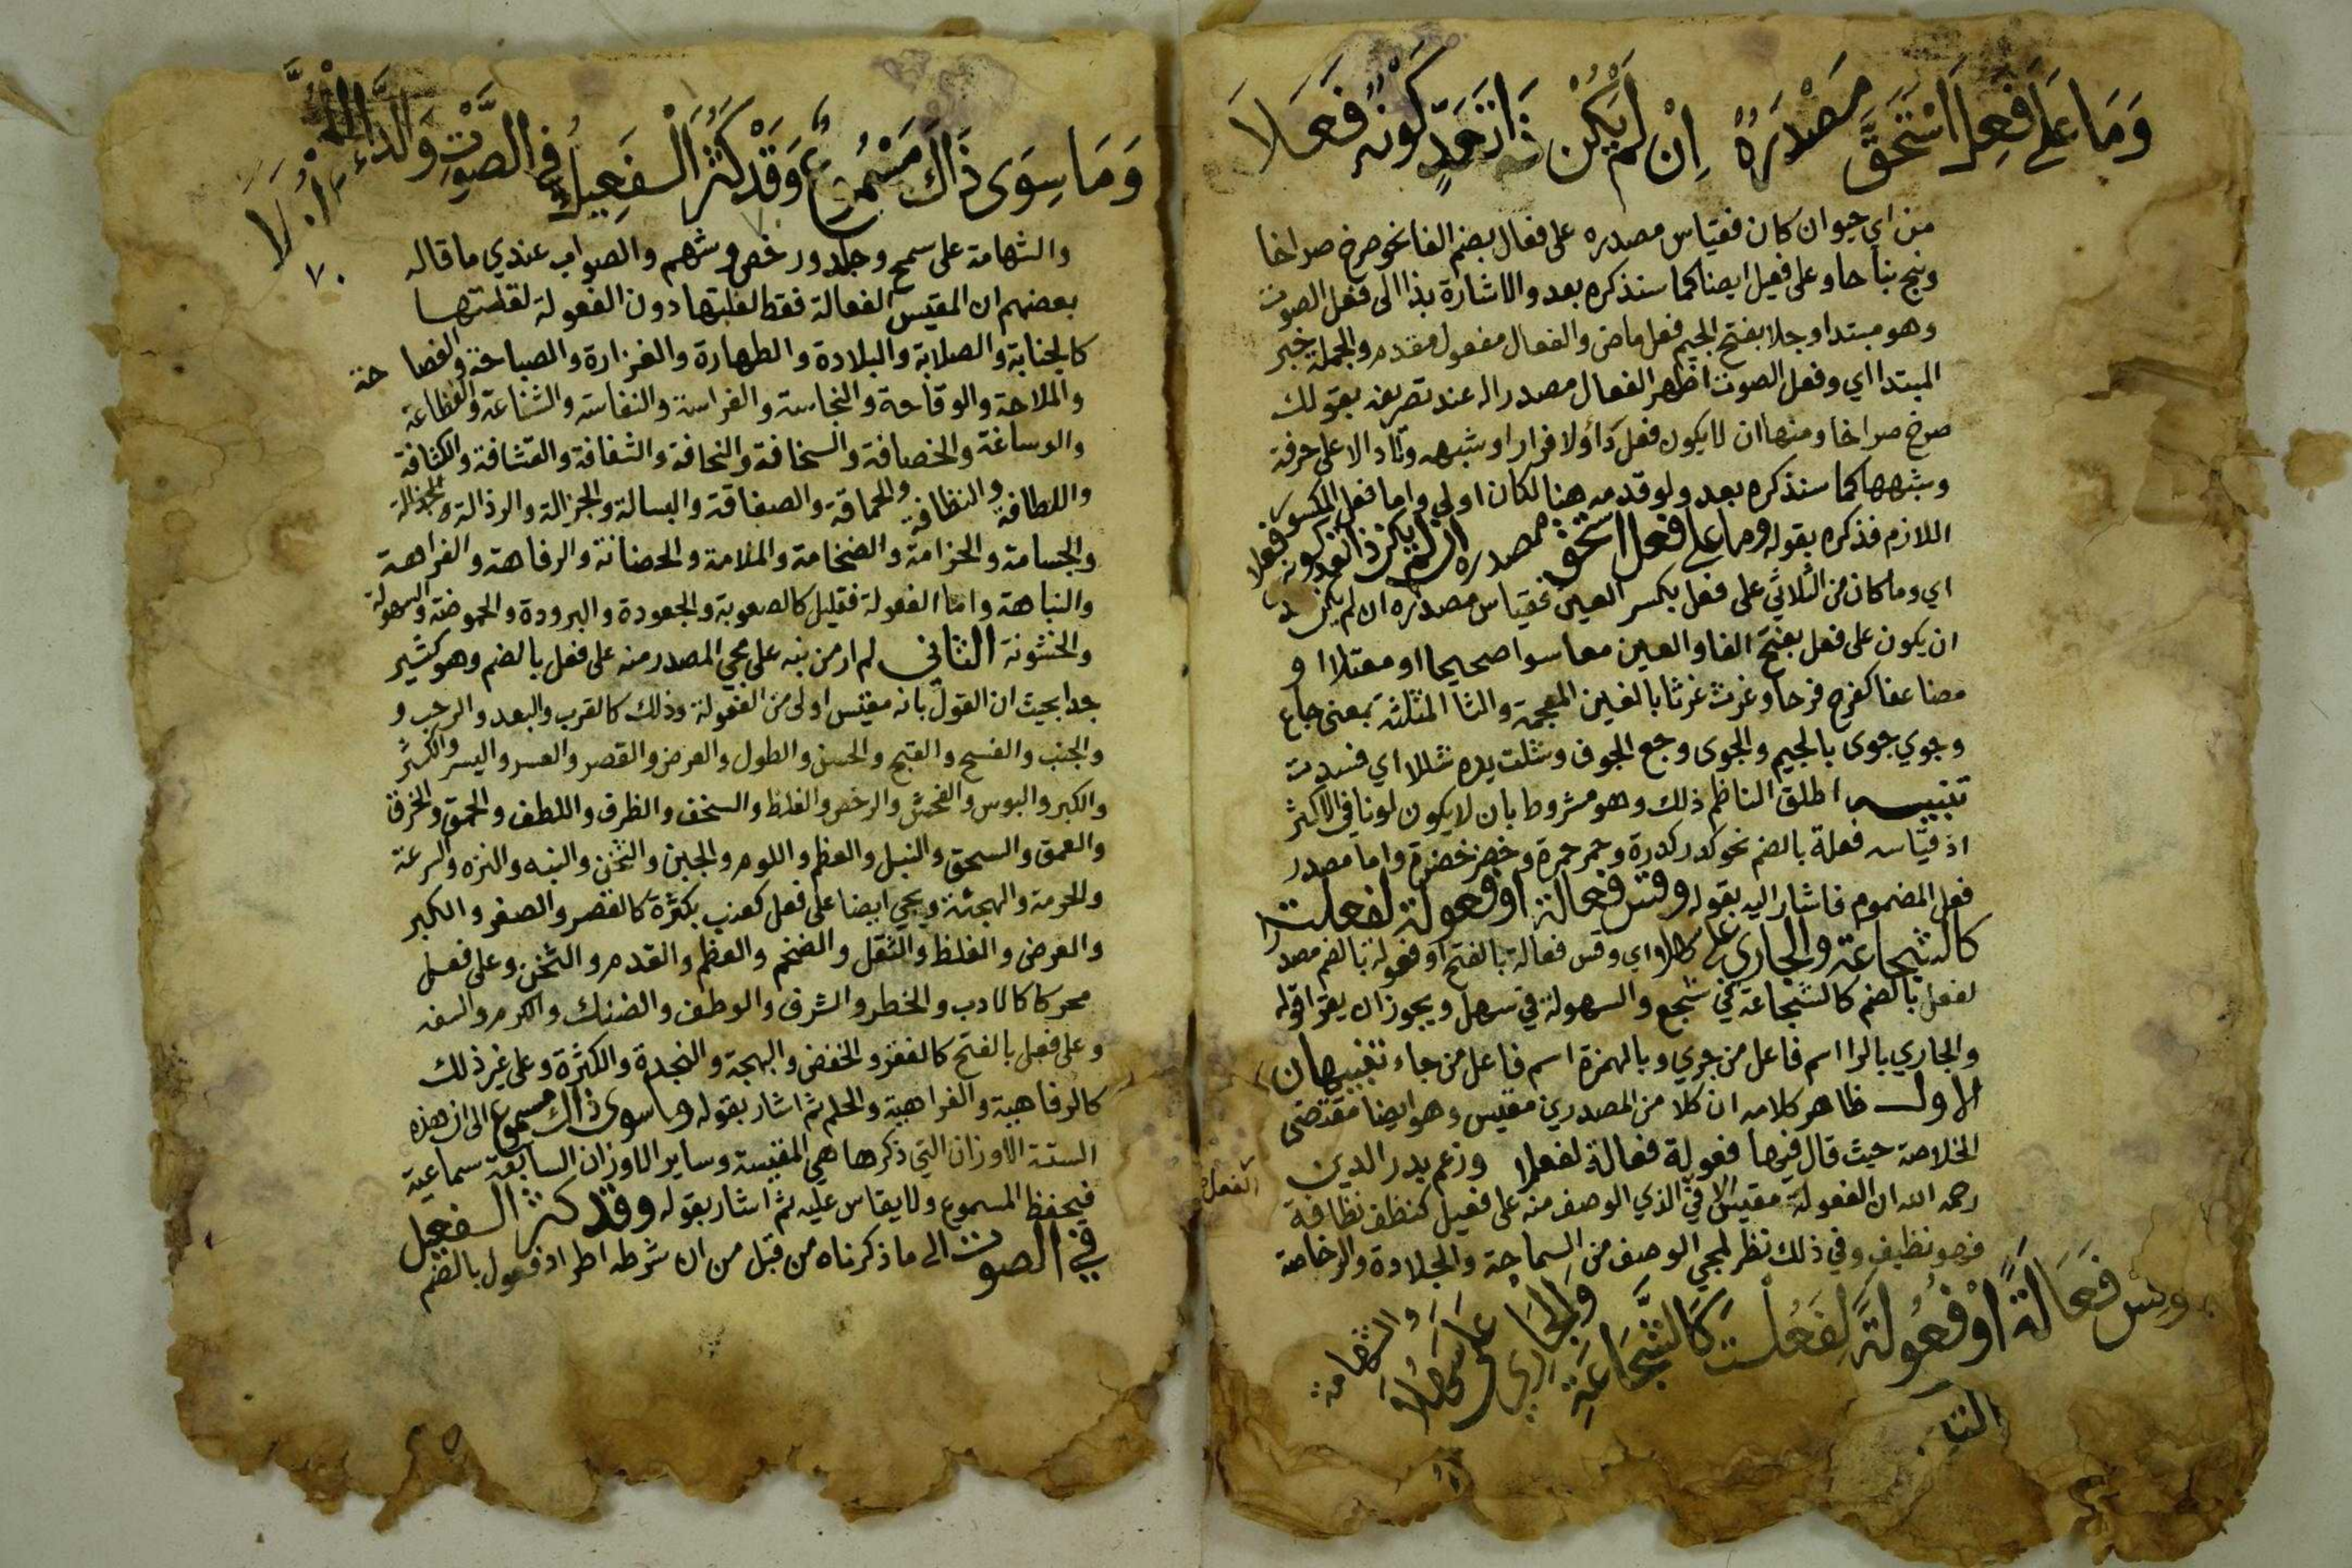 وَمَا عَلَى فَعِلَ اسْتَحَقَّ مَصْدَرُهُ اِنْ لَمْ يَكُنْ ذَا تَعَدٍّ كَوْنُهُ فَعَلَا
من اي حيوان كان فقياس مصدره على فعال بضم الفا نحو صرخ صراخا
ونبح نباحا وعلى فعيل ايضا كما سنذكره بعد والاشارة بذا الى فعل الصوت
وهو مبتدا وجلا بفتح الجيم فعل ماض والفعال مفعول مقدم والجملة خبر
المبتدا اي وفعل الصوت اظهر الفعال مصدرا له عند تصريفه بقولك
صرخ صراخا ومنها ان لا يكون فعل داء ولا فرار او شبهه ولا دالا على حرفة
وشبهها كما سنذكره بعد ولو قدمه هنا لكان اولى واما فعل المكسور
اللازم فذكره بقوله وما على فعل استحق مصدره ان لم يكن ذا تعد كونه فعلا
اي وما كان من الثلاثي على فعل بكسر العين فقياس مصدره ان لم يكن
ان يكون على فعل بفتح الفا والعين معا سوا صحيحا او معتلا او
مضاعفا كفرح فرحا وغرث غرثا بالغين المعجمة والثا المثلثة بمعنى جاع
وجوي جوى بالجيم والجوى وجع الجوف وشلت يده شللا اي فسدت
تنبيه اطلق الناظم ذلك وهو مشروط بان لا يكون لونا في الاكثر
اذ قياسه فعلة بالضم نحو كدر كدرة وحمر حمرة وخضر خضرة واما مصدر
فعل المضموم فاشار اليه بقوله وقس فعالة او فعولة لفعلت
كالشجاعة والجاري على سهلا اي وقس فعالة بالفتح او فعولة بالضم مصدرا
لفعل بالضم كالشجاعة في شجع والسهولة في سهل ويجوز ان يقرا قوله
والجاري بالرا اسم فاعل من جري وبالهمزة اسم فاعل من جاء تنبيهان
الاول ظاهر كلامه ان كلا من المصدرين مقيس وهو ايضا مقتضى
الخلاصة حيث قال فيها فعولة فعالة لفعلا وزعم بدر الدين
رحمه الله ان الفعولة مقيس الا في الذي الوصف منه على فعيل كنظف نظافة
الفعل
فهو نظيف وفي ذلك نظر لمجي الوصف من السماحة والجلادة والرخاصة
وَقِسْ فَعَالَةً اَوْ فُعُولَةً لِفَعُلْتَ كَالشَّجَاعَةِ وَالْجَارِي عَلَى سَهُلَا
والشهامة
وَمَا سِوَى ذَاكَ مَسْمُوعٌ وَقَدْ كَثُرَ الْفَعِيلُ فِي الصَّوْتِ وَالدَّاءِ
٧٠
والشهامة على سمح وجلد ورخص وشهم والصواب عندي ما قاله
بعضهم ان المقيس الفعالة فقط لغلبتها دون الفعولة لقلتها
كالجنابة والصلابة والبلادة والطهارة والغزارة والصباحة والفصاحة
والملاحة والوقاحة والنجاسة والفراسة والنفاسة والشناعة والفظاعة
والوساغة والخصافة والسخافة والنحافة والثقافة والقشافة والكثافة
واللطافة والنظافة والحماقة والصفاقة والبسالة والجزالة والرذالة والجذالة
والجسامة والحزامة والضخامة والملامة والحضانة والرفاهة والفراهة
والنباهة واما الفعولة فقليل كالصعوبة والجعودة والبرودة والحموضة والسهولة
والخشونة الثاني لم ار من نبه على مجي المصدر منه على فعل بالضم وهو كثير
جدا بحيث ان القول بانه مقيس اولى من الفعولة وذلك كالقرب والبعد والرحب و
والجنب والفسح والقبح والحسن والطول والعرض والقصر والعسر واليسر والكثر
والكبر والبوس والفحش والرخص والغلظ والسخف والظرف واللطف والحمق والخرق
والعمق والسحق والنبل والعظم واللوم والجبن والثخن والنبه والنزه والسرعة
والحرمة والهجنة ويجي ايضا على فعل كعنب بكثرة كالقصر والصغر والكبر
والعرض والغلظ والثقل والضخم والعظم والقدم والثخن وعلى فعل
محركا كالادب والخطر والشرف والوطف والضنك والكرم والسفه
وعلى فعل بالفتح كالفقر والخفض والبهجة والنجدة والكثرة وعلى غير ذلك
كالرفاهية والفراهية والحلم ثم اشار بقوله وما سوى ذاك مسموع الى ان هذه
الستة الاوزان التي ذكرها هي المقيسة وساير الاوزان السابقة سماعية
فيحفظ المسموع ولا يقاس عليه ثم اشار بقوله وقد كثر الفعيل
في الصوت الى ما ذكرناه من قبل من ان شرطه اطراد فعول بالضم